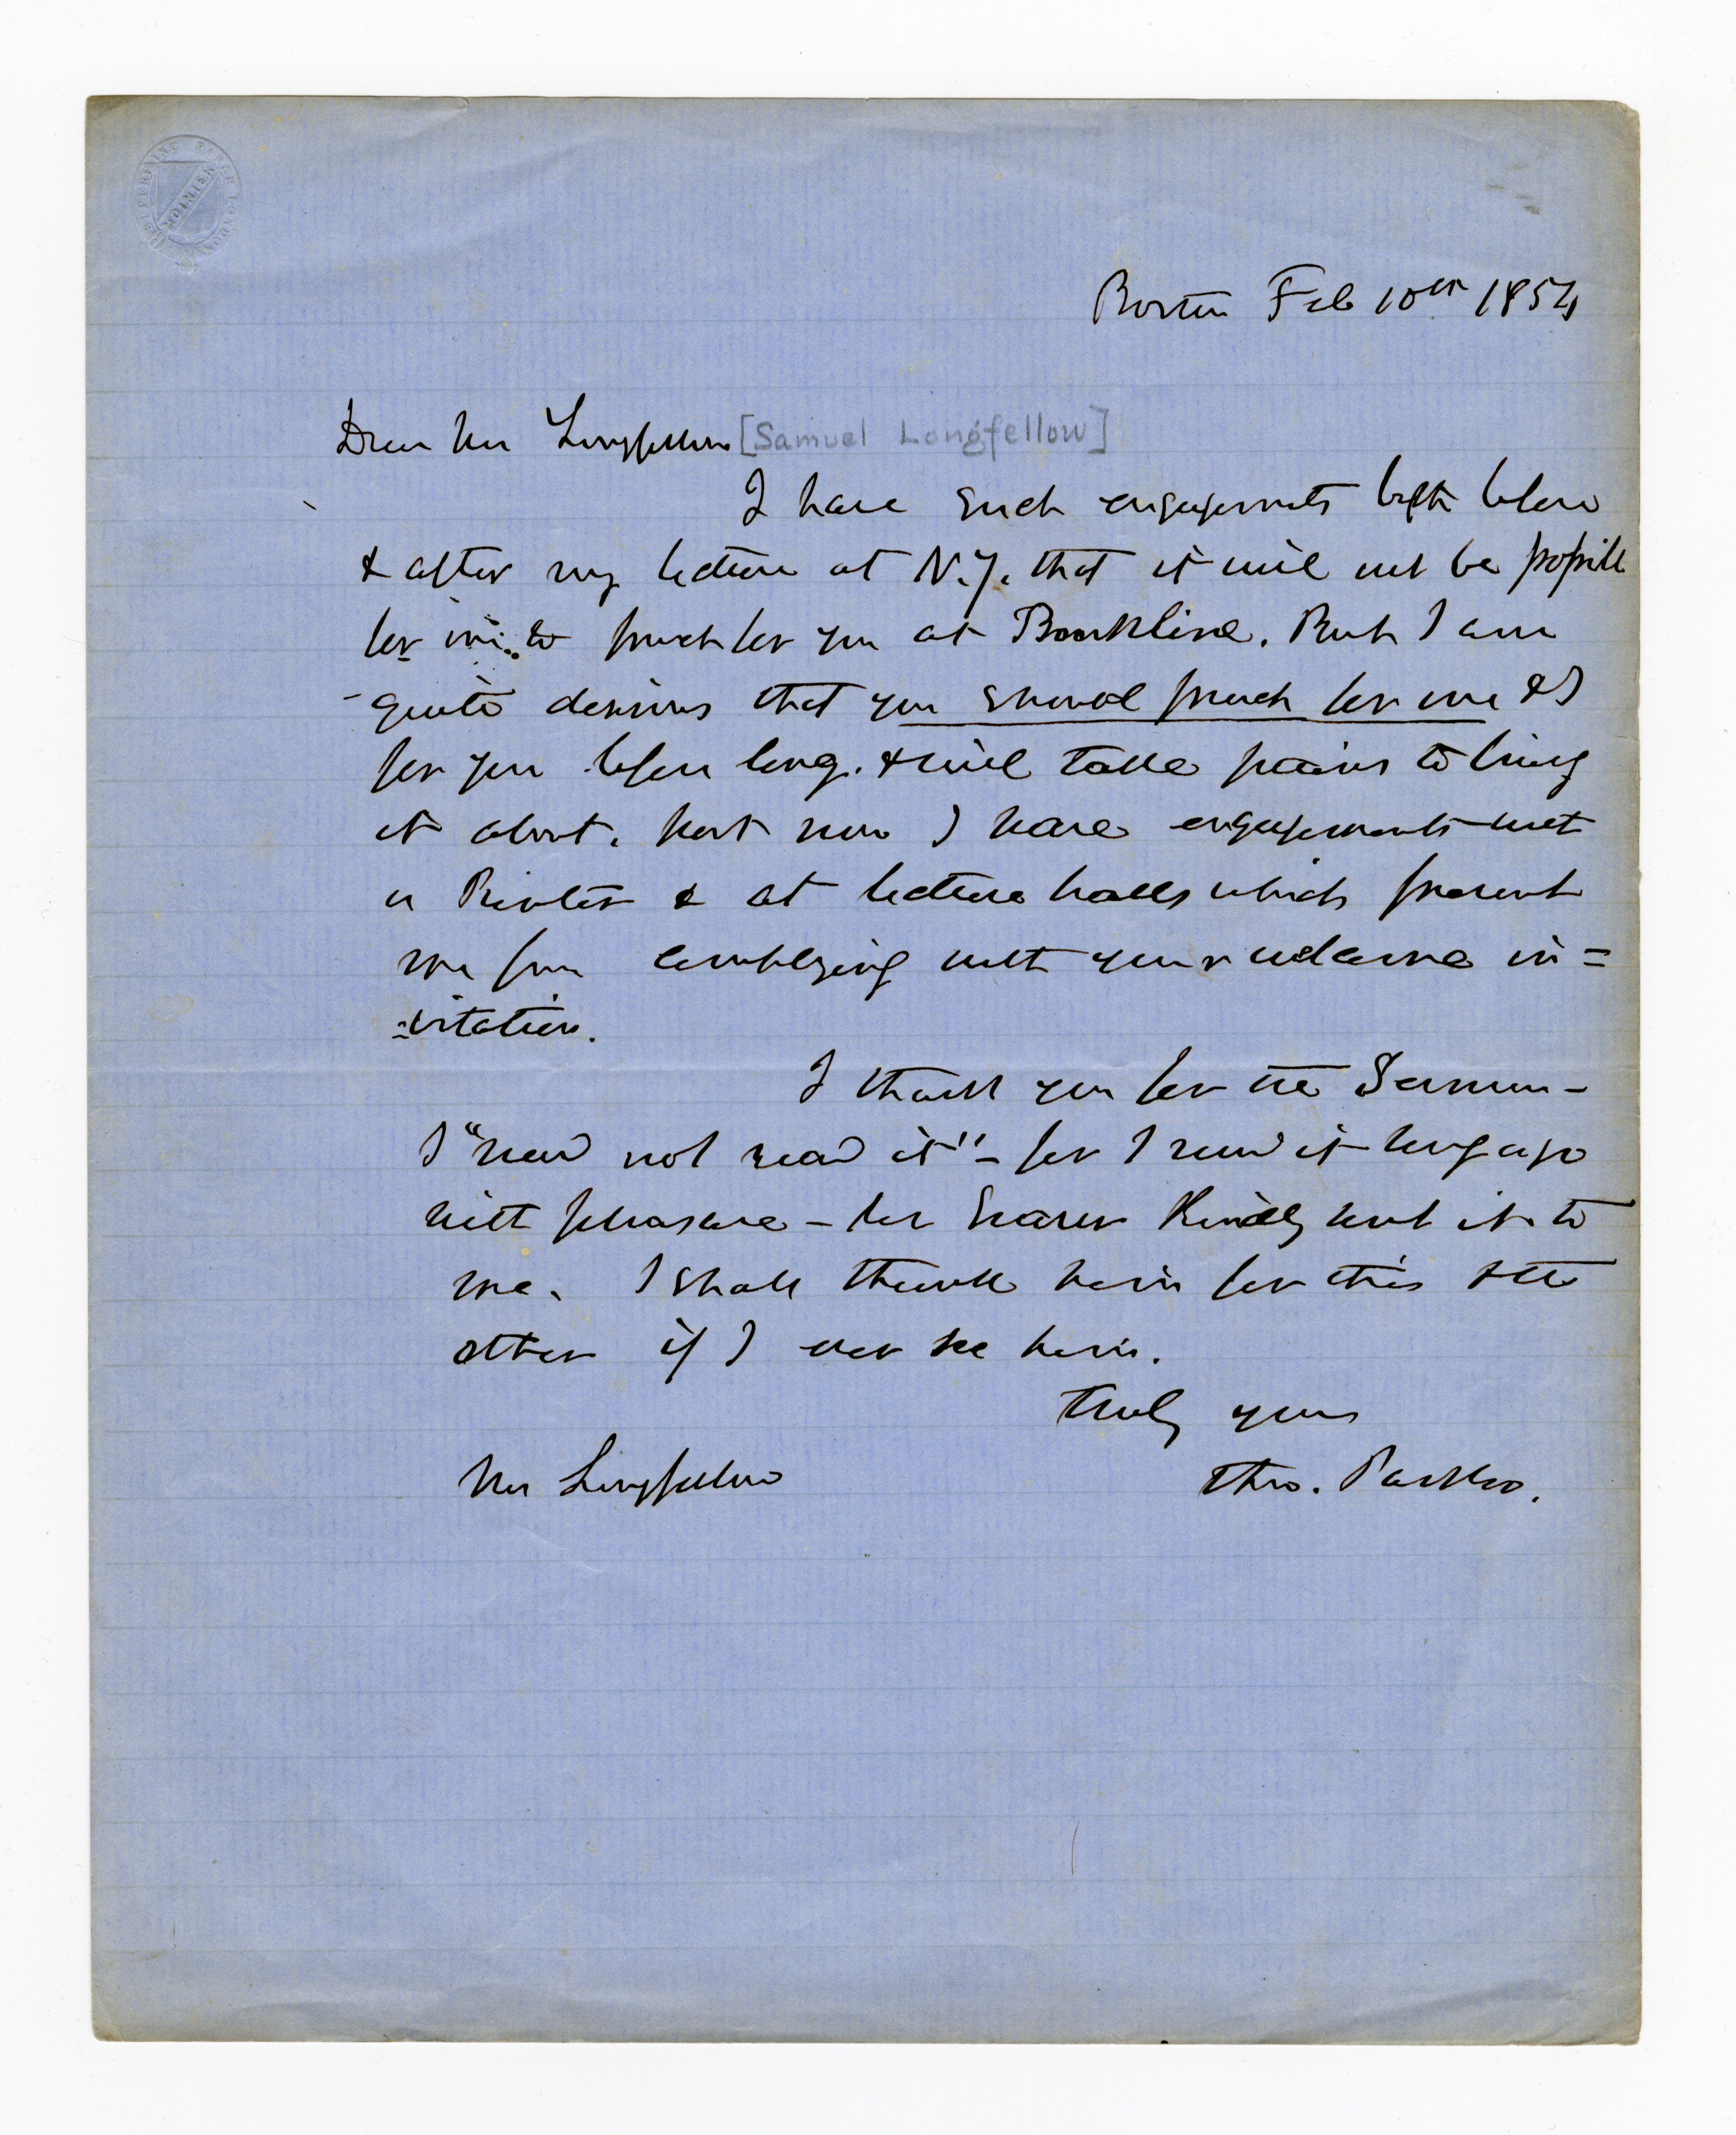 Boston Feb 10th 1854
Dear Mr Longfellow [Samuel Longfellow]
I have such engagements both before
& after my lecture at N.Y. that it will not be possible
for me to preach for you at Brookline. But I am
quite desirous that you should preach for me & I
for you before long. & will take pains to bring
it about. Just now I have engagements with
a Printer & at lecture halls which prevent
me from complying with your welcome in=
=vitation.
I thank you for the Sermon –
I "have not read it" – for I read it long ago
with pleasure – for kindly sent it to
me. I shall thank him for this & the
other if I ever see him.
Truly yours
Mr Longfellow Theo. Parker.